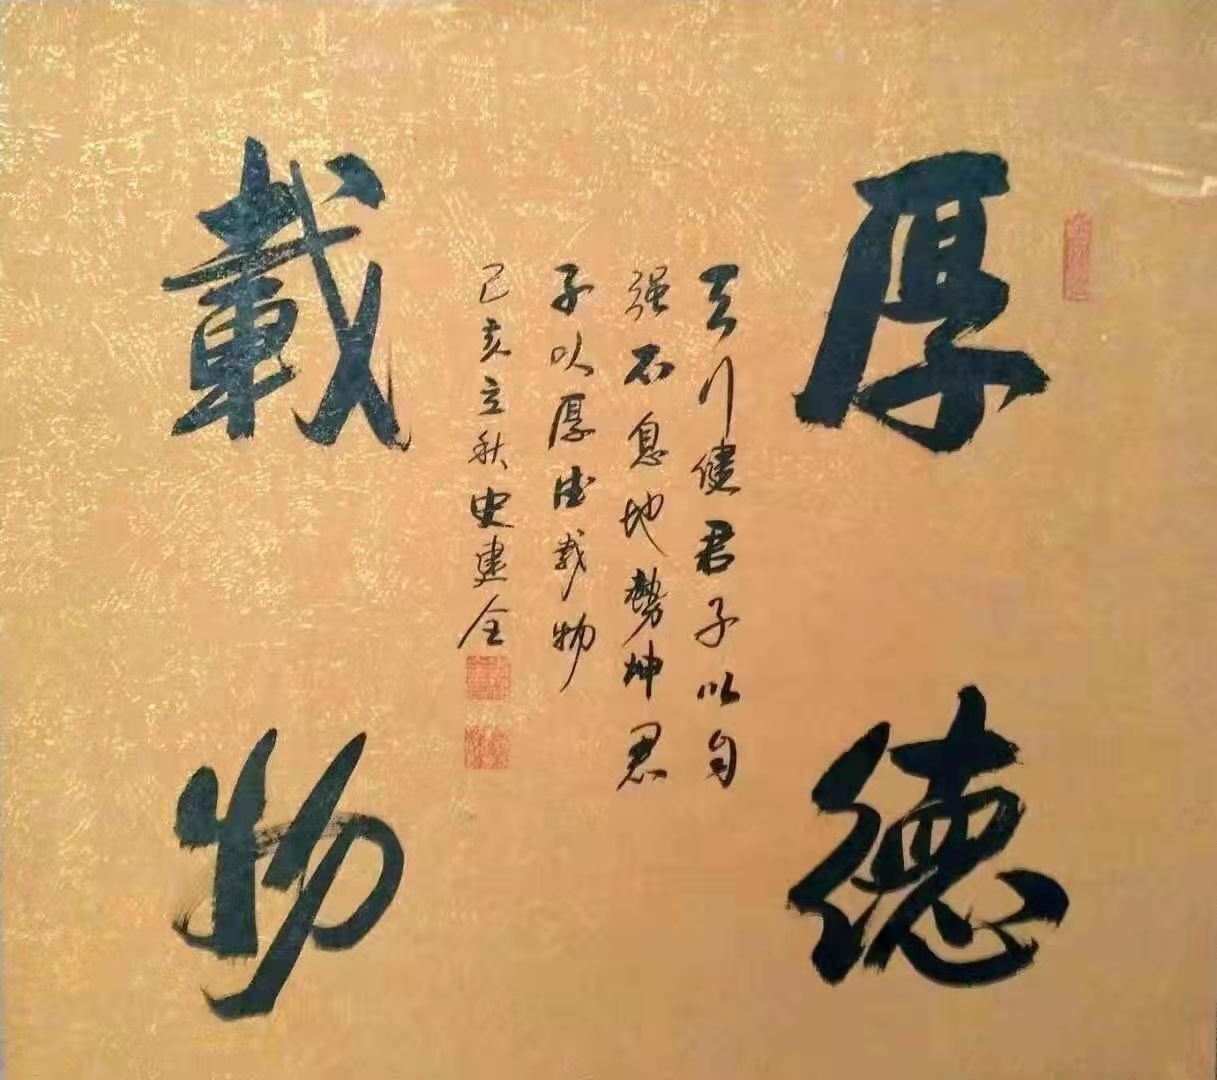 厚德
載物
天行健君子以自
强不息地勢坤君
子以厚德载物
己亥立秋史建全